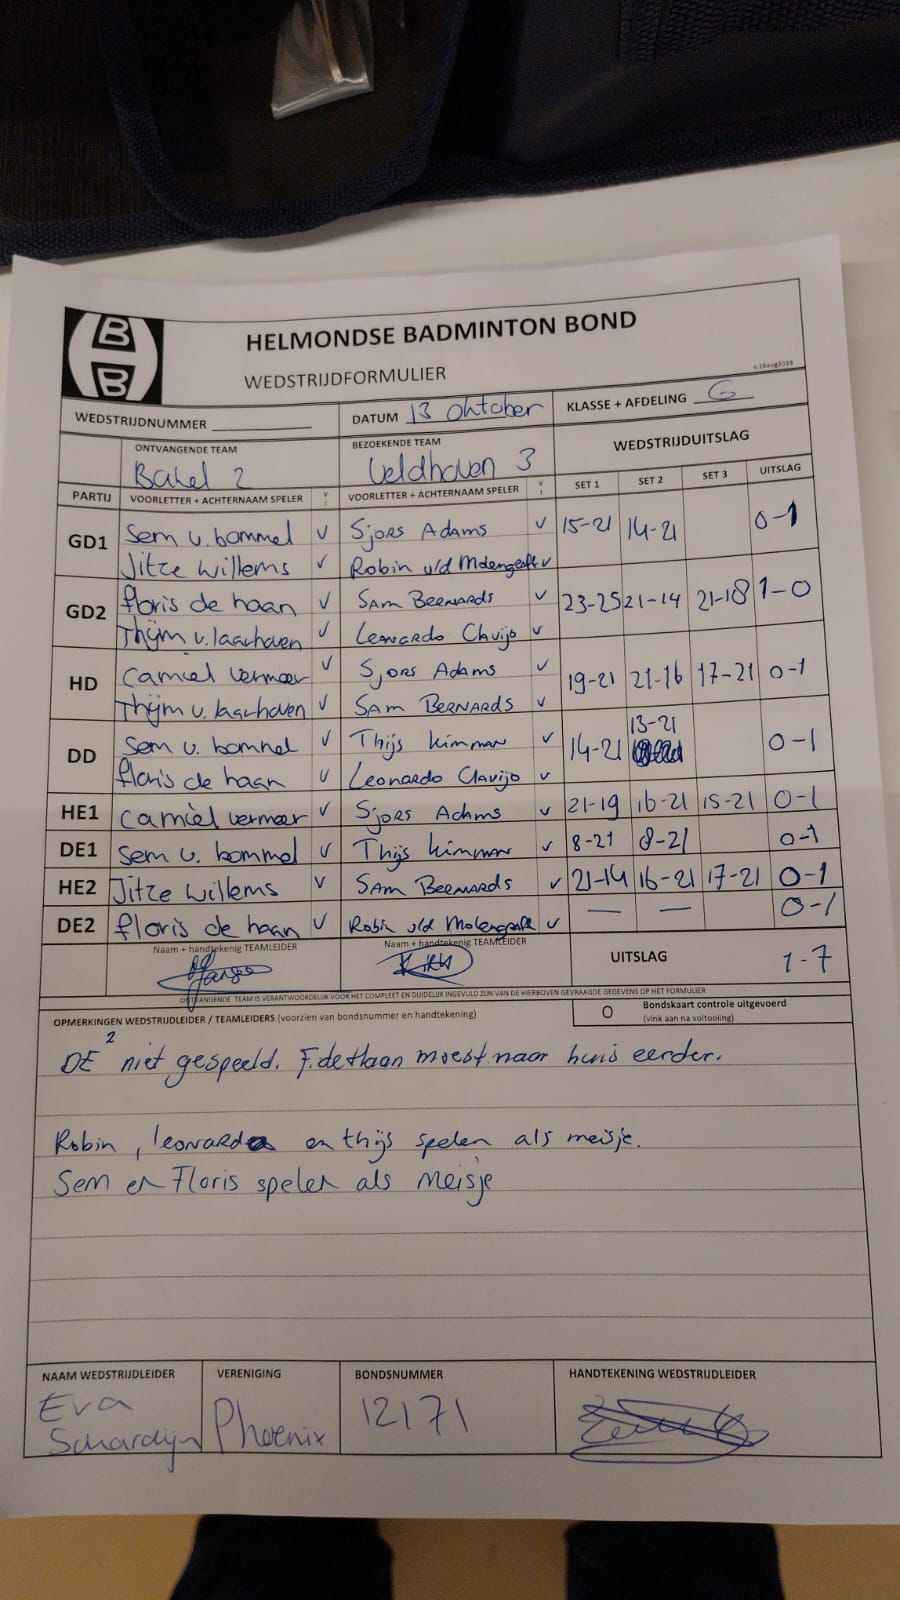 HBB
HELMONDSE BADMINTON BOND
WEDSTRIJDFORMULIER
v.19aug2019
WEDSTRIJDNUMMER DATUM 13 oktober KLASSE + AFDELING G
ONTVANGENDE TEAM BEZOEKENDE TEAM WEDSTRIJDUITSLAG
Bakel 2 Veldhoven 3
PARTIJ VOORLETTER + ACHTERNAAM SPELER V VOORLETTER + ACHTERNAAM SPELER V SET 1 SET 2 SET 3 UITSLAG
GD1 Sem v. bommel v Sjors Adams v 15-21 14-21 0-1
Jitze Willems v Robin v/d Molengraft v
GD2 floris de haan v SAM BERNARDS v 23-25 21-14 21-18 1-0
Thijm v. laarhoven v Leonardo Clavijo v
HD Camiel vermeer v Sjors Adams v 19-21 21-16 17-21 0-1
Thijm v. laarhoven v SAM BERNARDS v
DD Sem v. bommel v Thijs Kimman v 14-21 13-21 0-1
floris de haan v Leonardo Clavijo v
HE1 Camiel vermeer v Sjors Adams v 21-19 16-21 15-21 0-1
DE1 Sem v. bommel v Thijs Kimman v 8-21 8-21 0-1
HE2 Jitze Willems v SAM BERNARDS v 21-14 16-21 17-21 0-1
DE2 floris de haan v Robin v/d Molengraft v — — 0-1
Naam + handtekenig TEAMLEIDER Naam + handtekenig TEAMLEIDER UITSLAG 1-7
ONTVANGENDE TEAM IS VERANTWOORDELIJK VOOR HET COMPLEET EN DUIDELIJK INGEVULD ZIJN VAN DE HIERBOVEN GEVRAAGDE GEGEVENS OP HET FORMULIER
OPMERKINGEN WEDSTRIJDLEIDER / TEAMLEIDERS (voorzien van bondsnummer en handtekening) O Bondskaart controle uitgevoerd
(vink aan na voltooiing)
DE 2 niet gespeeld. F. de Haan moest naar huis eerder.
Robin, leonardo en thijs spelen als meisje.
Sem en Floris spelen als meisje
NAAM WEDSTRIJDLEIDER VERENIGING BONDSNUMMER HANDTEKENING WEDSTRIJDLEIDER
Eva Schardijn Phoenix 12171